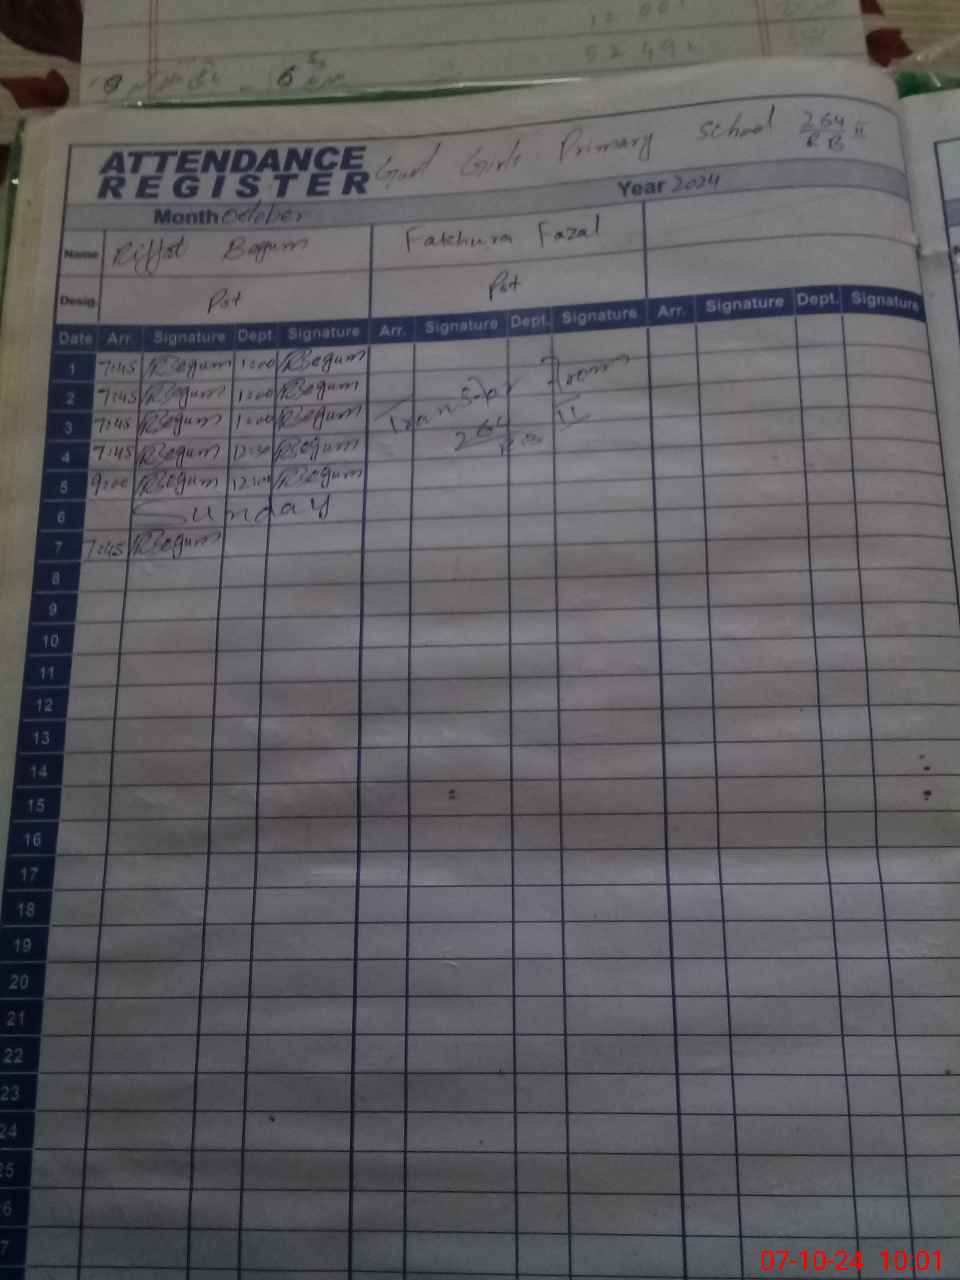 52491
ATTENDANCE
REGISTER
Govt Girls Primary School 264/RB II
Month October Year 2024
Name Riffat Begum Fakhura Fazal
Desig. Pst Pst
Date Arr. Signature Dept. Signature Arr. Signature Dept. Signature Arr. Signature Dept. Signature
1 7:45 RBegum 1:00 RBegum
2 7:45 RBegum 1:00 RBegum
3 7:45 RBegum 1:00 RBegum
4 7:45 RBegum 12:30 RBegum
5 9:00 RBegum 12:00 RBegum
Transfer From
264/RB II
6 Sunday
7 7:45 RBegum
8
9
10
11
12
13
14
15
16
17
18
19
20
21
22
23
24
25
6
7
07-10-24 10:01